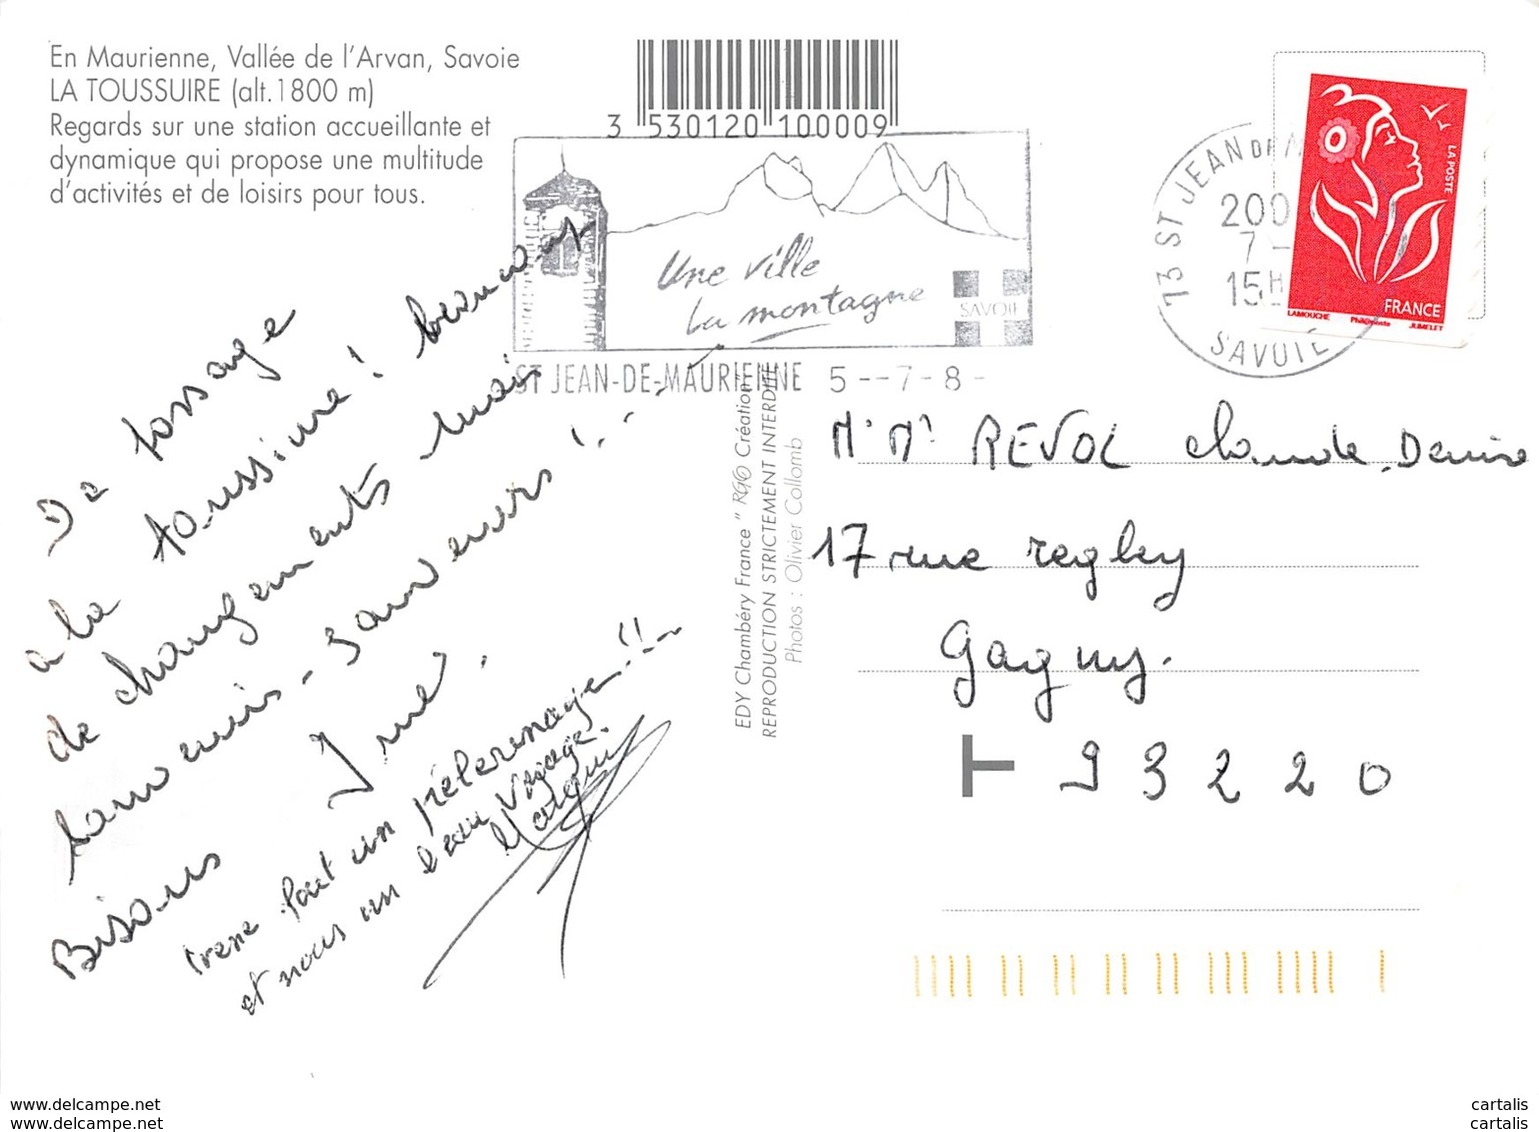 En Maurienne, Vallée de l'Arvan, Savoie
LA TOUSSUIRE (alt.1800 m)
Regards sur une station accueillante et
dynamique qui propose une multitude
d'activités et de loisirs pour tous.
3 530120 100009
Une ville
La montagne
SAVOIE
ST JEAN-DE-MAURIENNE 5--7-8-
73 ST JEAN DE M
200
7-
15H
SAVOIE
LA POSTE
FRANCE
LAMOUCHE Phil@poste JUMELET
De passage
a la toussuire! beaucoup
de changements mais
souvenirs-souvenirs!..
Bisous Irené.
irene fait un pélerinage!!
et nous un beau voyage.
EDY Chambéry France " RGO Création"
REPRODUCTION STRICTEMENT INTERDITE
Photos : Olivier Collomb
REVOL Claude. Denise
17 rue regley
Gagny.
T 93220
www.delcampe.net
www.delcampe.net
cartalis
cartalis